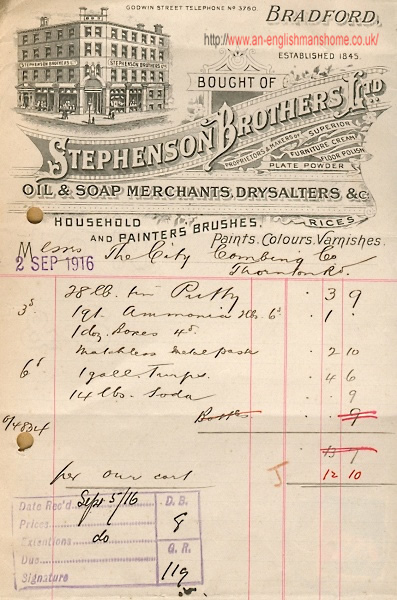 GODWIN STREET TELEPHONE No 3760.
BRADFORD,
http://www.an-englishmanshome.co.uk/
ESTABLISHED 1845.
STEPHENSON BROTHERS LTD
STEPHENSON BROTHERS LTD
BOUGHT OF
STEPHENSON BROTHERS LTD
PROPRIETORS & MAKERS OF SUPERIOR
FURNITURE CREAM
FLOOR POLISH
PLATE POWDER
OIL & SOAP MERCHANTS, DRYSALTERS &c.
HOUSEHOLD
AND PAINTERS BRUSHES.
RICES,
Paints. Colours. Varnishes.
Messrs The City Combing Co
2 SEP 1916
Thornton Rd.
28 lb. tin Putty . 3 9
3s 1 qt. Ammonia 2lbs. 6d . 1 .
1 doz Boxes 4d.
Matchless Metal paste . 2 10
6s 1 gall. Turps. . 4 6
14 lbs. Soda . 9
4834 Bottles 9
13 7
per our cart J 12 10
Date Rec'd Sept 5/16 D.B.
Prices 8
Extentions do G.R.
Due
Signature 119